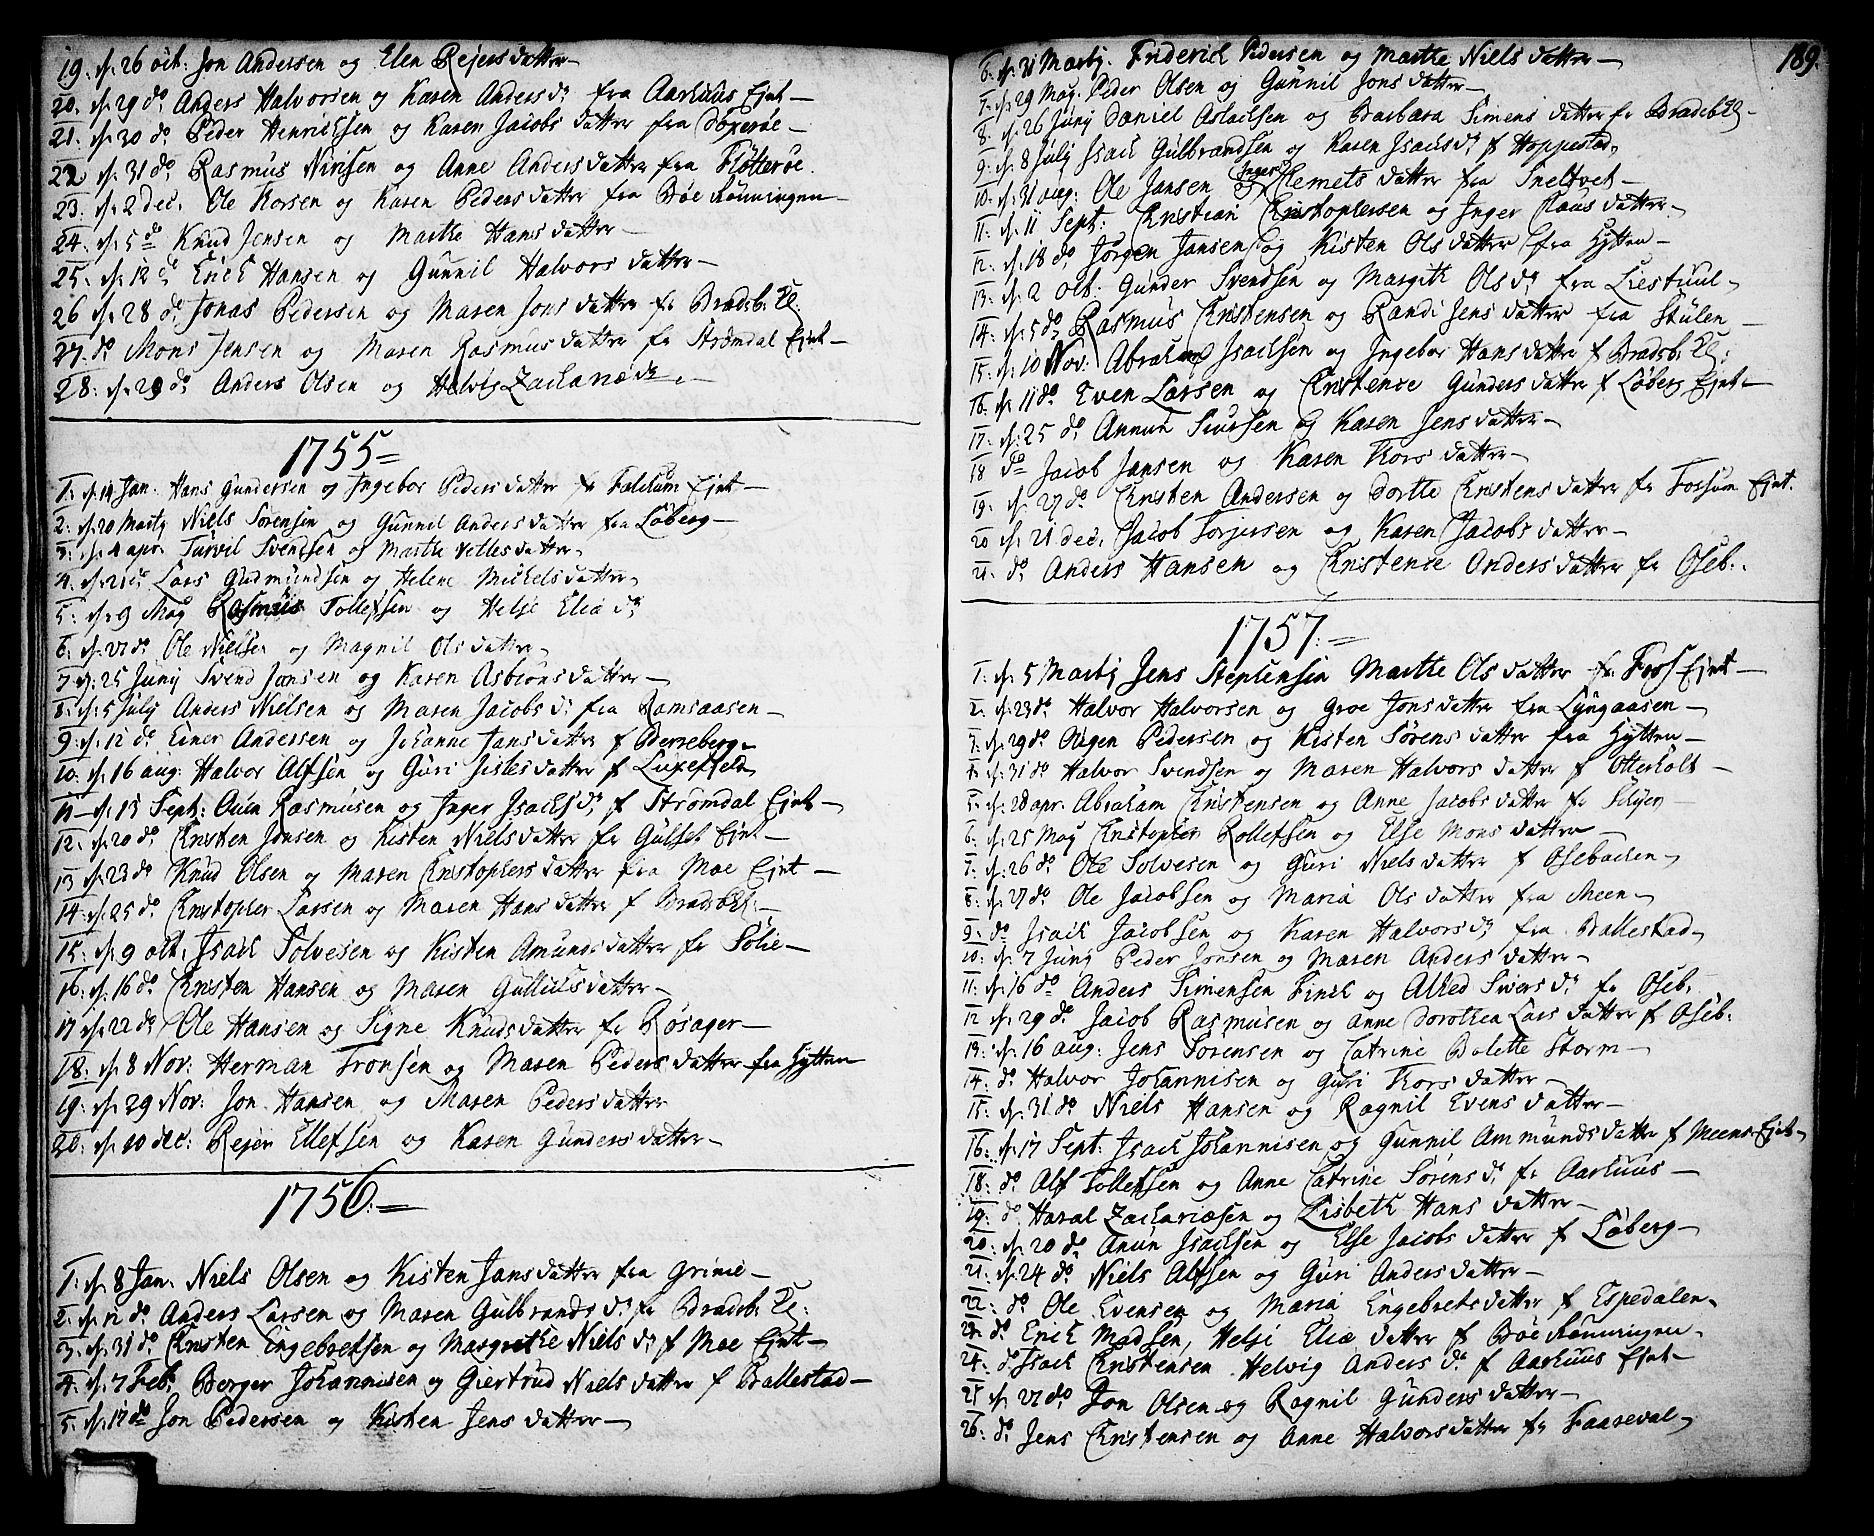 19: d: 26 oct: Jon Andersen og Elen Rejersdatter
20. d. 29 do Anders Halvorsen og Karen Andersd: fra Aarhuus Ejet
21: d: 30 do Peder Henrichsen og Karen Jacobs datter fra
22 d: 31 do Rasmus Nirisen og Anne Anders datter fra Flotteröe.
23: d: 2 dec. Ole Thorsen og Karen Pedersdatter fra Böe Rönningen
24: d: 5 do Knud Jensen og Marthe Hans datter
25: d: 12 do Erich Hansen og Gunnil Halvors datter
26 d: 28 do Jonas Pedersen og Maren Jons datter fr Bradsb: Kl:
27. do Mons Jensen og Maren Rasmus datter fr Strömdal Ejet
28: d: 29 do Anders Olsen og Helvig Zachariæ dr.
1755
1: d: 14 Jan. Hans Gundersen og Ingebor Peders datter fr Falkum Ejet
2: d: 20 Martij Niels Sörensen og Gunnil Anders datter fra Löberg
3: d: 4 apr: Turvil Svendsen og Marthe Velles datter
4: d: 21 do Lars Gudmundsen og Helene Mickels datter
5: d: 9 Maj Rasmus Tollefsen og Helje Eliæ dr
6: d: 27 do Ole Nielsen og Magnil Ols datter
7 d: 25 Junij Svend Jansen og Karen Asbions datter
8: d: 5 Julij Anders Nielsen og Maren Jacobs dr fra Ramsaasen
9: d: 12 do Einer Andersen og Johanne Jans datter f Berreberg
10: d: 16 aug: Halvor Alfsen og Guri Gisles datter f Luxefjeld
11 d: 15 Sept: Auen Rasmusen og Inger Isachs dr f Strömdal Ejet
12: d: 20 do Christen Jonsen og Kisten Niels datter fr Gulset Ejet
13 d: 23 do Knud Olsen og Maren Christophers datter fra Moe Ejet
14: d: 25 do Christopher Larsen og Maren Hans datter f Bradsb Kl:
15: d: 9 oct: Isach Solvesen og Kisten Amunds datter fr Sölie
16: d: 16 do Christen Hansen og Maren Gullichs datter
17 d: 22 do Ole Hansen og Signe Knuds datter fr Rösager
18: d: 8 Nov: Herman Tronsen og Maren Peders datter fra Hytten
19: d: 29 Nov: Jon Hansen og Maren Peders datter
20: d: 10 dec: Rejer Ellefsen og Karen Gunders datter
1756
1: d: 8 Jan: Niels Olsen og Kisten Jans datter fra Grinie
2: d: 12 do Anders Larsen og Maren Gulbrands dr fr Bradsb: Kl:
3: d: 31 do Christen Engebretsen og Margrethe Niels dr f Moe Ejet
4: d: 7 Feb: Berger Johannisen og Giertrud Niels datter f Ballestad
5: d: 17 do Jon Pedersen og Kisten Jens datter
189.
6: d: 21 Martij. Friderich Pedersen og Marthe Niels datter
7: d: 29 Maj. Peder Olsen og Gunnil Jons datter
8: d: 26 Junij Daniel Aslachsen og Barbara Simens datter fr Bradsb Kl
9: d: 8 Julij Isach Gulbrandsen og Karen Isachs dr f Hoppestad
10: d: 31 aug: Ole Jansen og Inger Clemets datter fra Sneltvet
11: d: 11 Sept: Christian Christophersen og Inger Claus datter
12: d: 18 do Jörgen Jansen og Kisten Ols datter fra Hytten
13: d: 2 oct: Gunder Svendsen og Margith Ols dr fra Liestuul
14: d: 5 do Rasmus Christensen og Randi Jens datter fra Stulen
15: d: 10 Nov: Abraham Isachsen og Ingebor Hans datter f Bradsb. Kl:
16: d: 11 do Even Larsen og Christence Gunders datter f Löberg Ejet
17: d: 25 do Annun Siursen og Karen Jens datter
18 do Jacob Jansen og Karen Thors datter
19: d: 27 do Christen Andersen og Dorthe Christens datter fr Fossum Ejet.
20 d: 21 dec: Jacob Torjersen og Karen Jacobs datter
21: do Anders Hansen og Christence Anders datter fr Oseb:
1757
1: d: 5 Martij Jens Stephensen Marthe Ols datter fr Fros Ejet
2: d: 23 do Halvor Halvorsen og Groe Jons datter fra Lyngaasen
3: d: 29 do Aagen Pedersen og Kisten Sörens datter fra Hytten
4: d: 31 do Halvor Svendsen og Maren Halvors datter f Otterholt
5: d: 28 apr. Abraham Christensen og Anne Jacobs datter fr Siljen
6: d: 25 Maj Christopher Rollefsen og Else Mons datter
7: d: 26 do Ole Solvesen og Guri Niels datter f Osebachen
8: d: 27 do Ole Jacobsen og Maria Ols datter fra Meen
9: do Isach Jacobsen og Karen Halvors dr fra Ballestad
10: d: 7 Junij Peder Jonsen og Maren Anders datter
11: d: 16 do Anders Simensen Finch og Alhed Sivers dr fr Oseb:
12 d: 29 do Jacob Rasmusen og Anne Dorothea Lars datter f Oseb:
13: d: 16 aug: Jens Sörensen og Catrine Bolette Storm
14: do Halvor Johannisen og Guri Thors datter
15: d: 31 do Niels Hansen og Ragnil Evens datter
16: d: 17 Sept: Isach Johannisen og Gunnil Ammunds datter f Meens Ejet
18: do Alf Tollefsen og Anne Catrine Sörens dr fr Aarhuus
19: do Haral Zachariæsen og Lisbeth Hans datter
20: d: 20 do Anun Isachsen og Else Jacobs datter f Löberg
21: d: 24 do Niels Alfsen og Guri Anders datter
22: do Ole Evensen og Maria Engebrets datter f Espedalen
23: do Erich Madsen, Helje Eliæ datter f Böe Rönningen
24: do Isach Christensen Helvig Anders dr f Aarhuus Ejet
25 d: 27 do Jon Olsen og Ragnil Gunders datter
26: do Jens Christensen og Anne Halvors datter fr Faareval